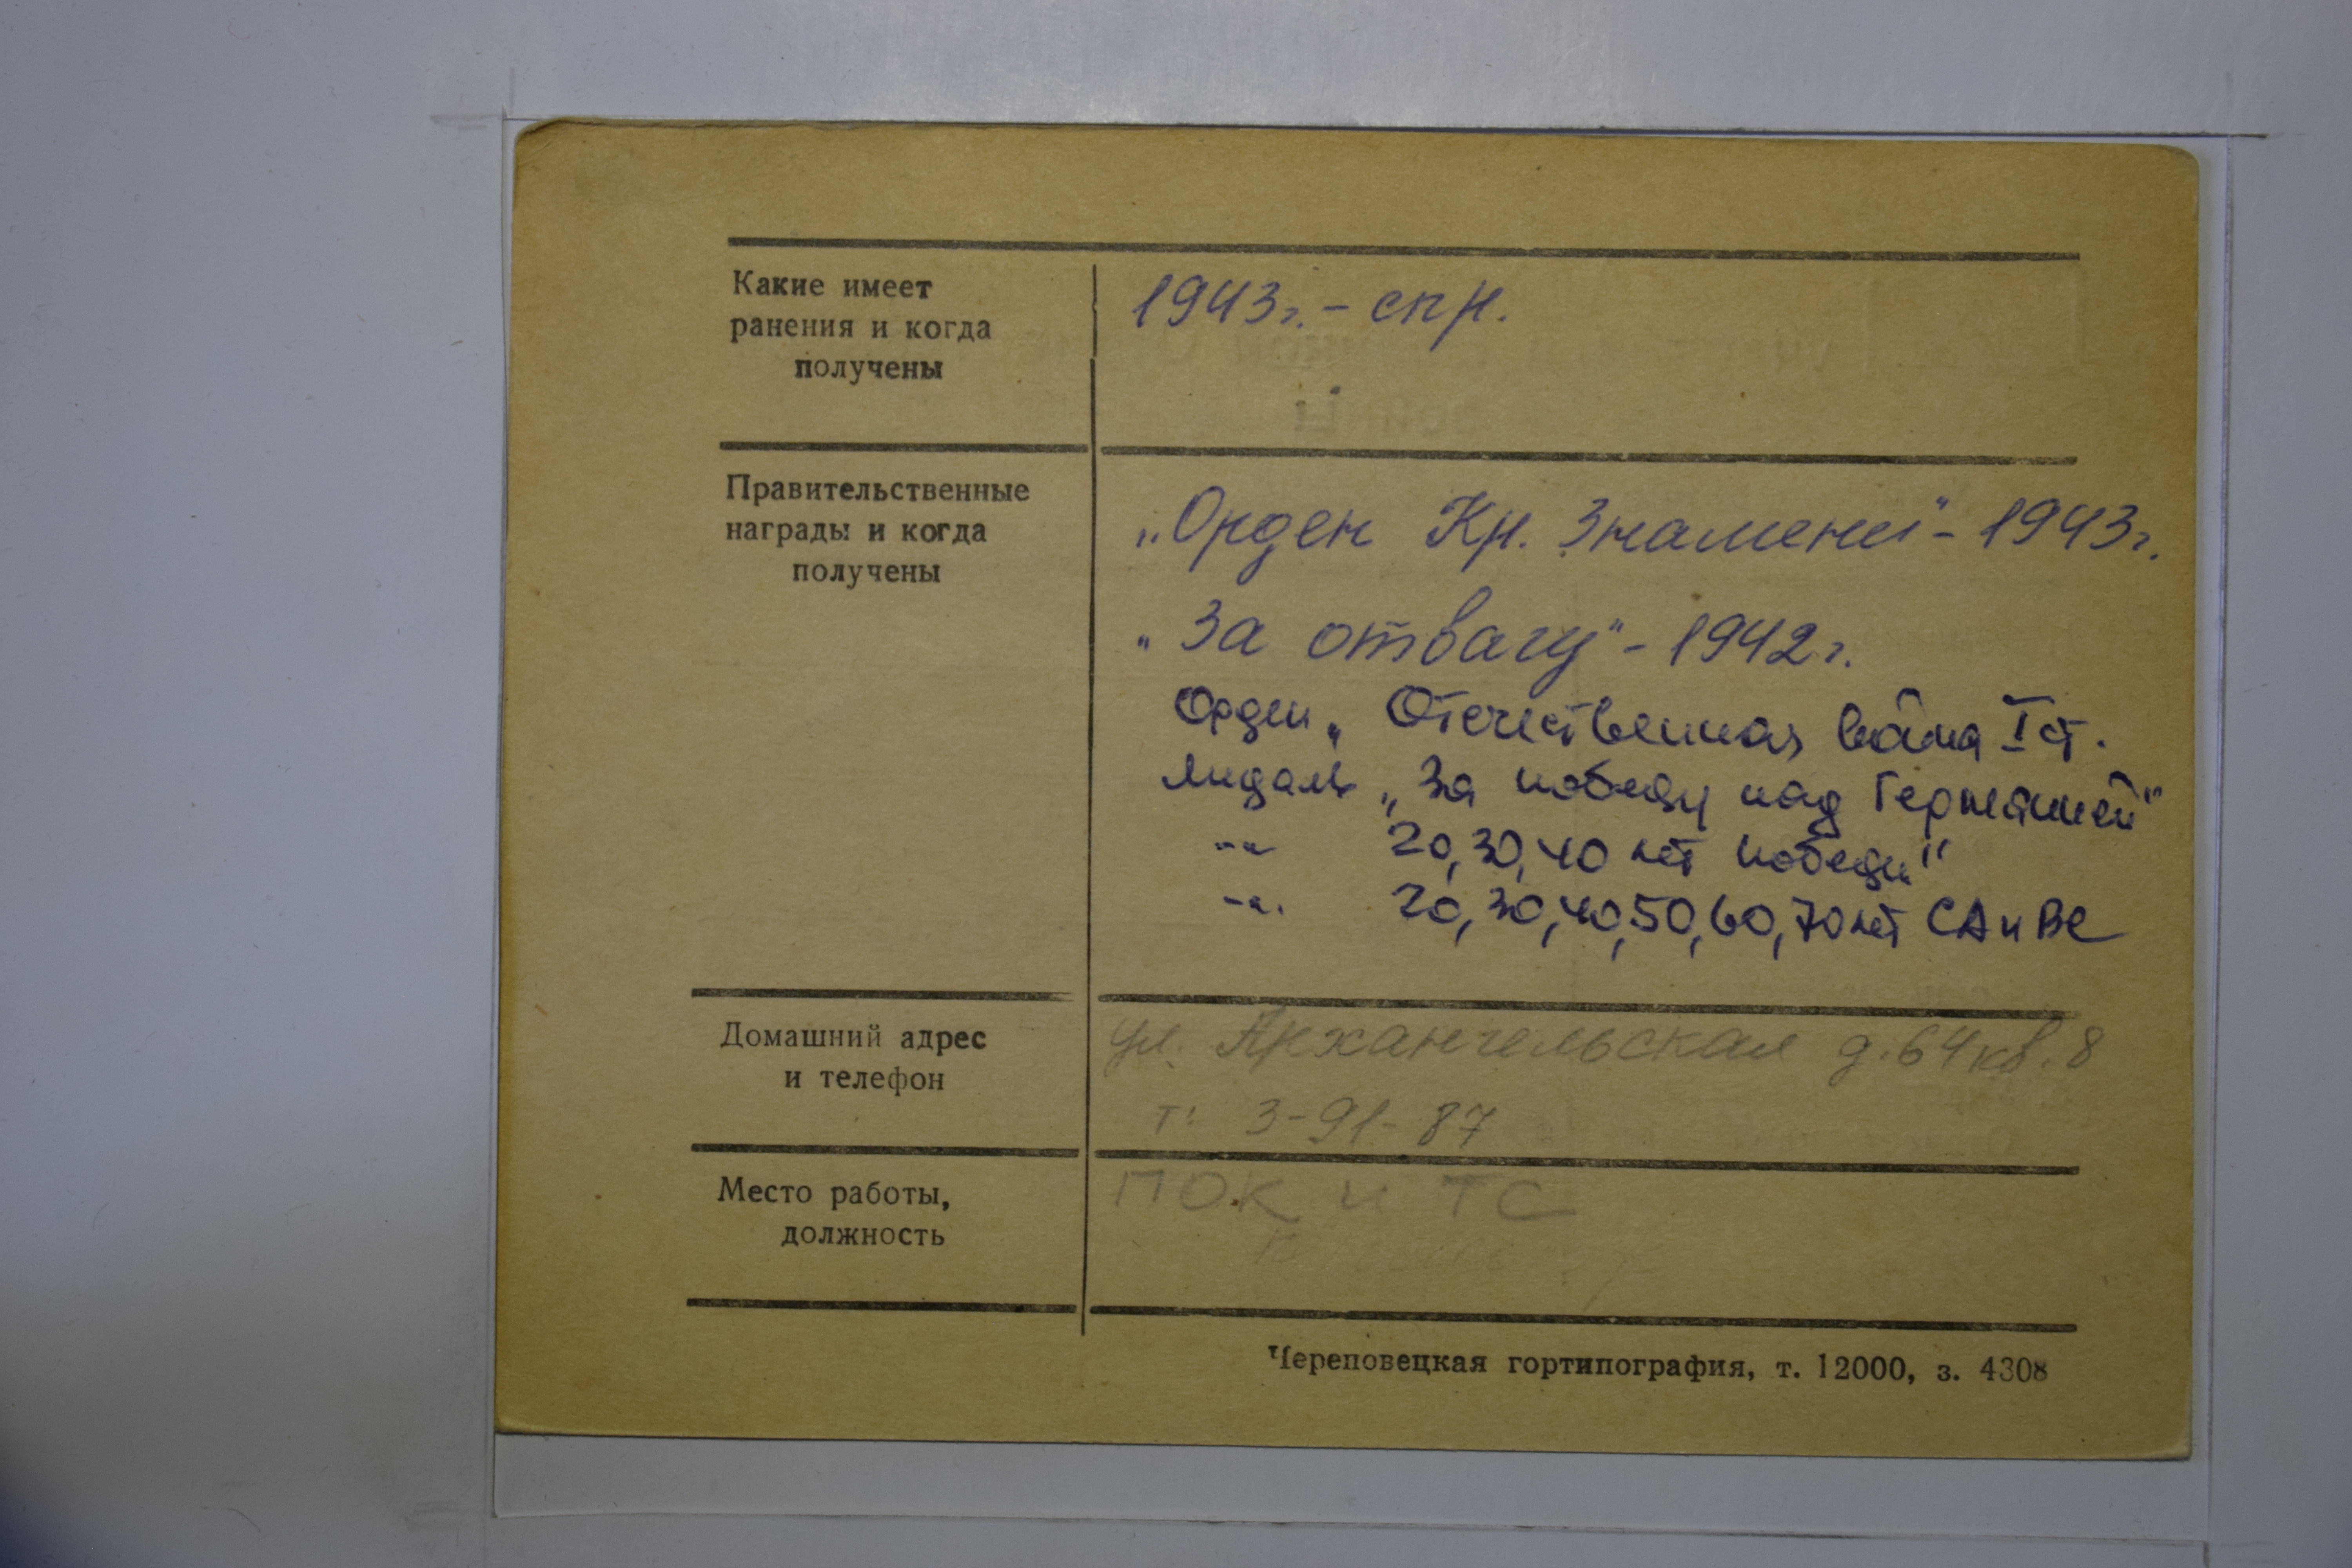 Какие имеет
ранения и когда
получены
1943г. - скр.
Правительственные
награды и когда
получены
„Орден Кр. Знамени" - 1943г.
„За отвагу" - 1942г.
Орден „Отечественная война I ст.
медаль „За победу над Германией"
-"- 20, 30, 40 лет победы"
-"- 20, 30, 40, 50, 60, 70 лет СА и ВС
Домашний адрес
и телефон
ул. Архангельская д. 64 кв. 8
т: 3-91-87
Место работы,
должность
ПОК и ТС
Череповецкая гортипография, т. 12000, з. 4308